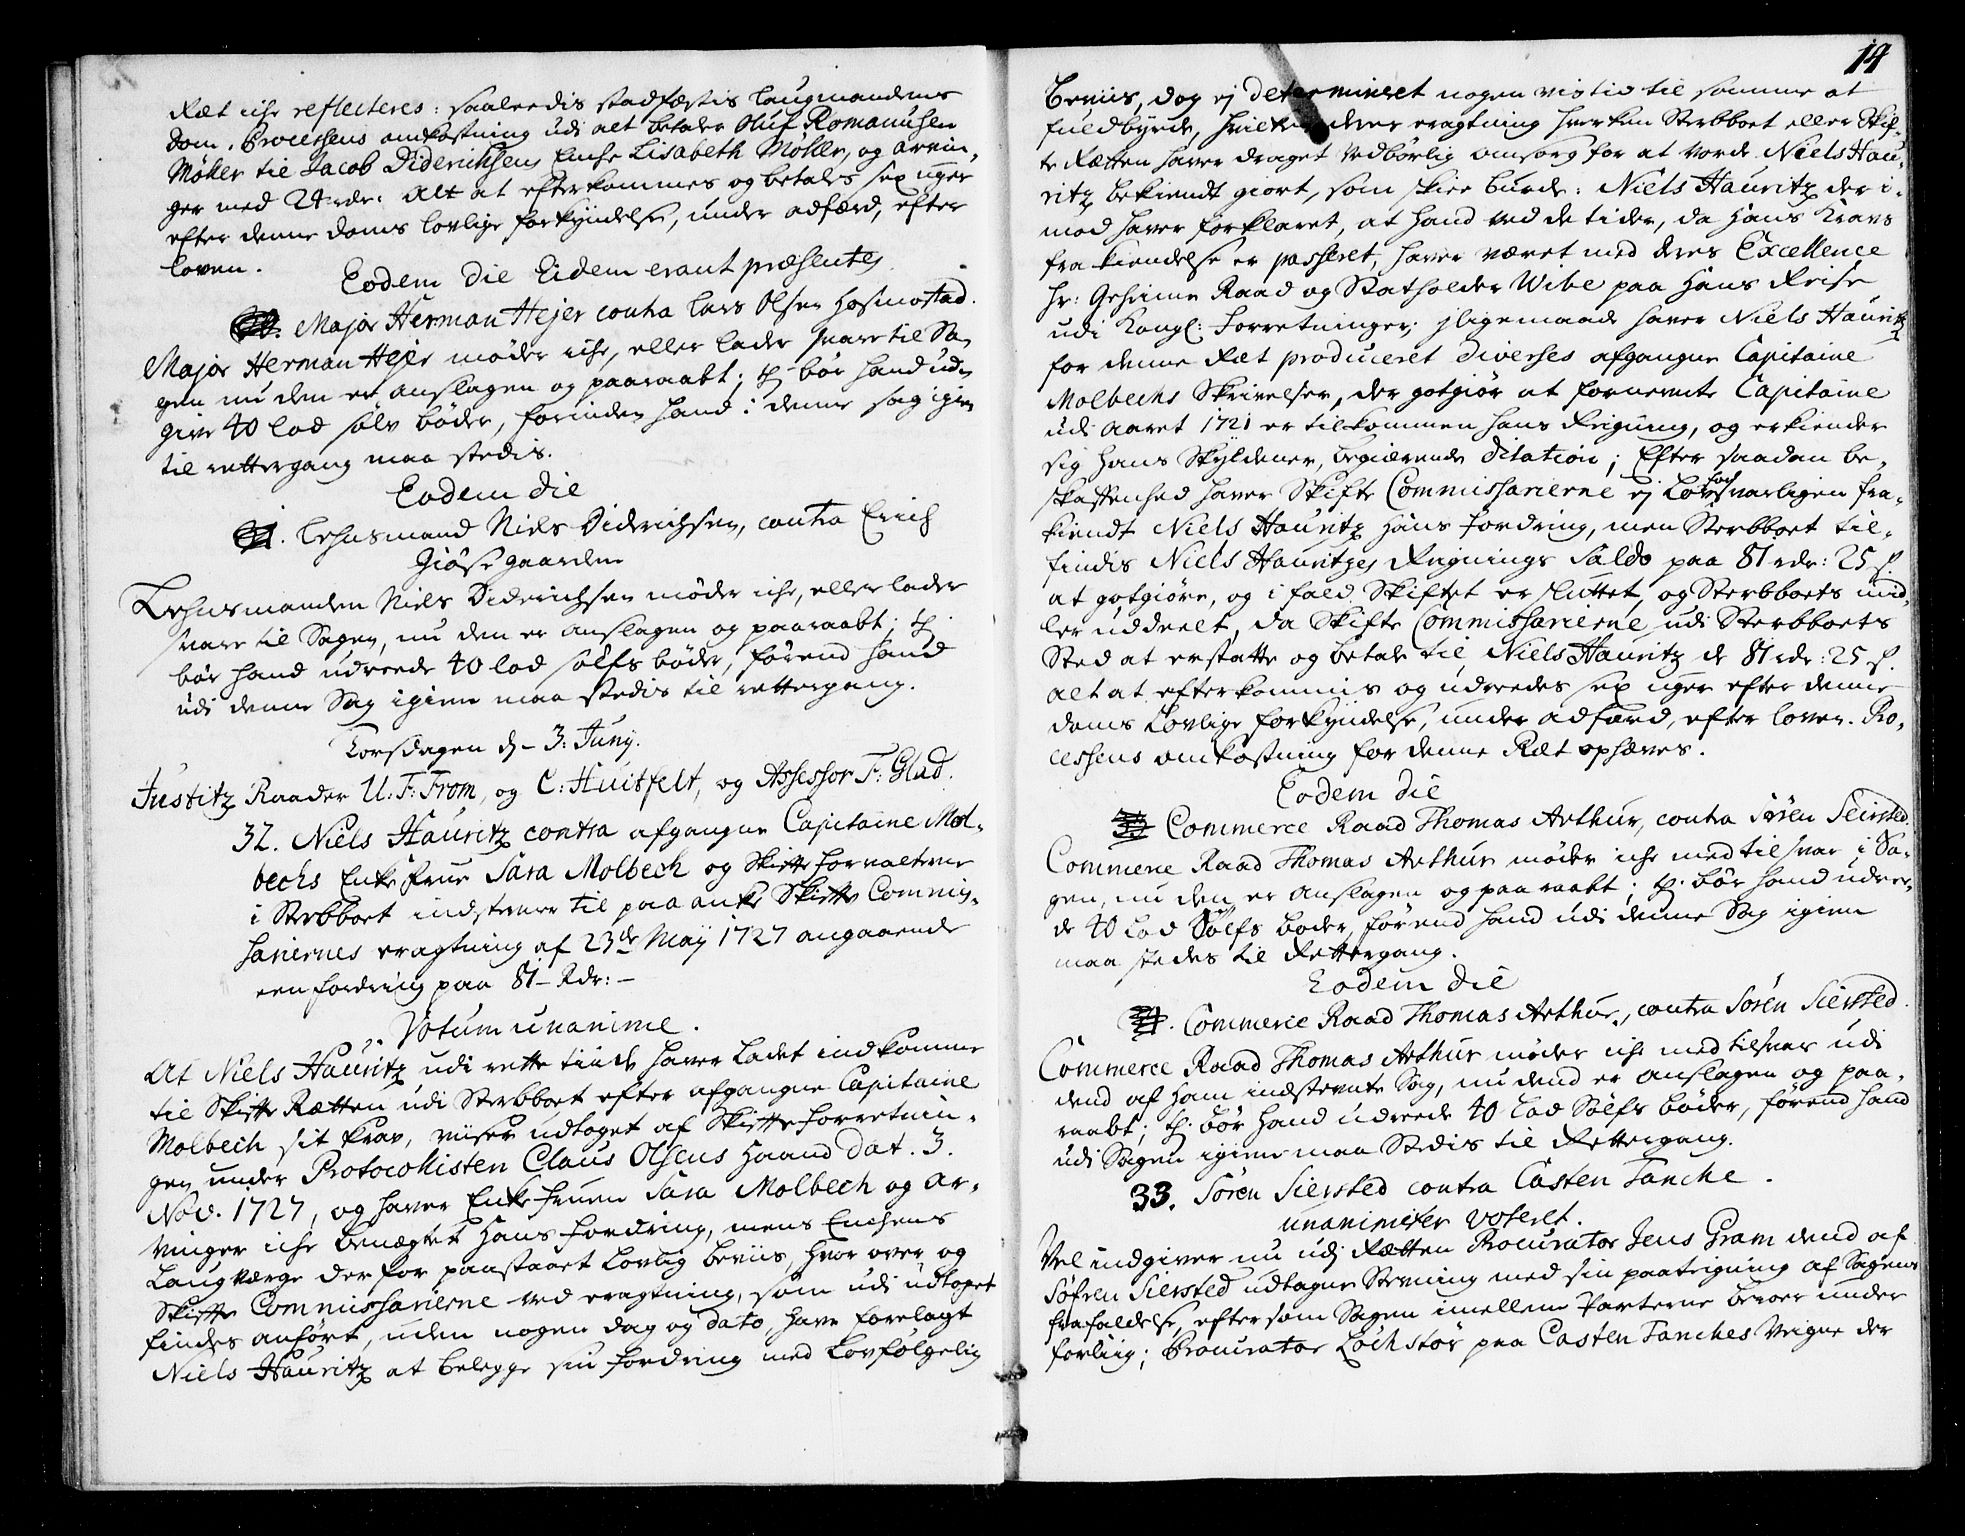 Ræt iche reflecteres: saaleedis stadfæstis Laugmandens
Dom. Processens omkostning udi alt betaler Oluf Romanusen
Møller til Jacob Diderichsens Enche Lisabeth Møller, og arvin¬
ger med 24 rdr: Alt at efterkommes og betales sex uger
efter denne Doms lovlige forkyndelse, under adfærd, efter
Loven.
Eodem Die Eidem erant præsentes
Major Herman Hejer contra Lars Olsen Hosmostad.
Major Herman Hejer møder iche, eller lader svare til Sa¬
gen nu den er anslagen og paaraabt; thj bør hand ud¬
give 40 lod sølv bøder, forinden hand i denne sag igien
til rettergang maa stedis.
Eodem Die
Lehnsmand Niels Didrichsen, contra Erich
Giøsegaarden
Lehnsmanden Niels Diderichsen møder iche, eller lader
svare til Sagen, nu den er anslagen og paaraabt; thj
bør hand udreede 40 lod sølfs bøder, førend hand
udi denne Sag igien maa stedis til rettergang.
Torsdagen d- 3: Junij.
Justitz Raader U: F: From, og C: Huitfelt, og Assessor F: Glad.
32. Niels Hauritz contra afgangne Capitaine Mol¬
bechs Enke frue Sara Molbech og Skifte forvalterne
i Sterbboet indstevner til paaanke Skifte Commis¬
sariernes eragtning af 23de Maij 1727 angaaende
een fordring paa 81- Rdr: -
Votum unanime.
At Niels Hauritz udi rette tiide haver ladet indkomme
til Skifte Rætten udi Sterbboet efter afgangne Capitaine
Molbech sit krav, viiser udtoget af Skifte forretnin¬
gen under Protocollisten Claus Olsens Haand dat. 3.
Nov. 1727, og haver Enke fruen Sara Molbech og Ar¬
vinger iche benægtet Hans fordring, mens Enchens
Laugværge derfor paastaaet Lovlig beviis, hvor over og
Skifte Commissarierne ved eragtning, som udi udtoget
findes anført, uden nogen dag og dato, have forelagt
Niels Hauritz at belegge sin fordring med Lovfølgelig
14
Beviis, dog ej determineret nogen vis tid til samme at
fuldbyrde, hvilken deres eragtning hverken Sterbboet eller Skif¬
te Rætten haver draget vedbørlig omsorg for at vorde Niels Hau¬
ritz bekiendt giort, som skee burde: Niels Hauritz der i¬
mod haver forklaret, at hand ved de tider, da Hans Kravs
fra kiendelse er passeret, haver været med deres Excellence
Hr: Geheime Raad og Statholder Wibe paa Hans Reise
udi Kongl: Forretninger; jligemaade haver Niels Hauritz
for denne Ræt produceret diverses afgangne Capitaine
Molbechs Skrivelser, der gotgiør at fornevnte Capitaine
udi Aaret 1721 er tilkommen hans Reigning, og erkiender
sig Hans Skyldener, begiærende Dilation; Efter saadan be¬
skaffenhed haver Skifte Commissarierne ej Lovforsvarligen fra¬
kiendt Niels Hauritz Hans fordring, men Sterbboet til¬
findis Niels Hauritzes Reignings Saldo paa 81 rdr: 25 s.
at gotgiøre, og i fald Skiftet er sluttet, og Sterbboets mid¬
ler uddeelt, da Skifte Commissarierne udi Sterbboets
Sted at erstatte og betale til Niels Hauritz de 81 rdr: 25 s.
Alt at efterkommis og udreedes sex uger efter denne
Doms Lovlige forkyndelse, under adfærd, efter Loven. Pro¬
cessens omkostning for denne Ræt ophæves.
Eodem Die
Commerce Raad Thomas Arthur, contra Søren Seirsted
Commerce Raad Thomas Arthur møder iche med tilsvar i Sa¬
gen, nu den er anslagen og paaraabt; thj bør hand udree¬
de 40 Lod Sølfs bøder, førend hand udi denne Sag igien
maa stedes til Rettergang.
Eodem die
Commerce Raad Thomas Arthur, contra Søren Siersted.
Commerce Raad Thomas Arthur møder iche med tilsvar udi
dend af ham indstevnte Sag, nu dend er anslagen og paa¬
raabt; thj bør hand udreede 40 Lod Sølfs bøder, førend hand
udi Sagen igien maa Stedis til Rettergang.
33. Søren Siersted contra Casten Tanche.
unanimiter voteret.
Vel indgiver nu udj Rætten Procurator Jens Gram dend af
Søfren Siersted udtagne Stevning med sin paategning af Sagens
frafaldelse, eftersom Sagen imellem Parterne beroer under
forliig; Procurator Lochstør paa Casten Tanches Veigne der